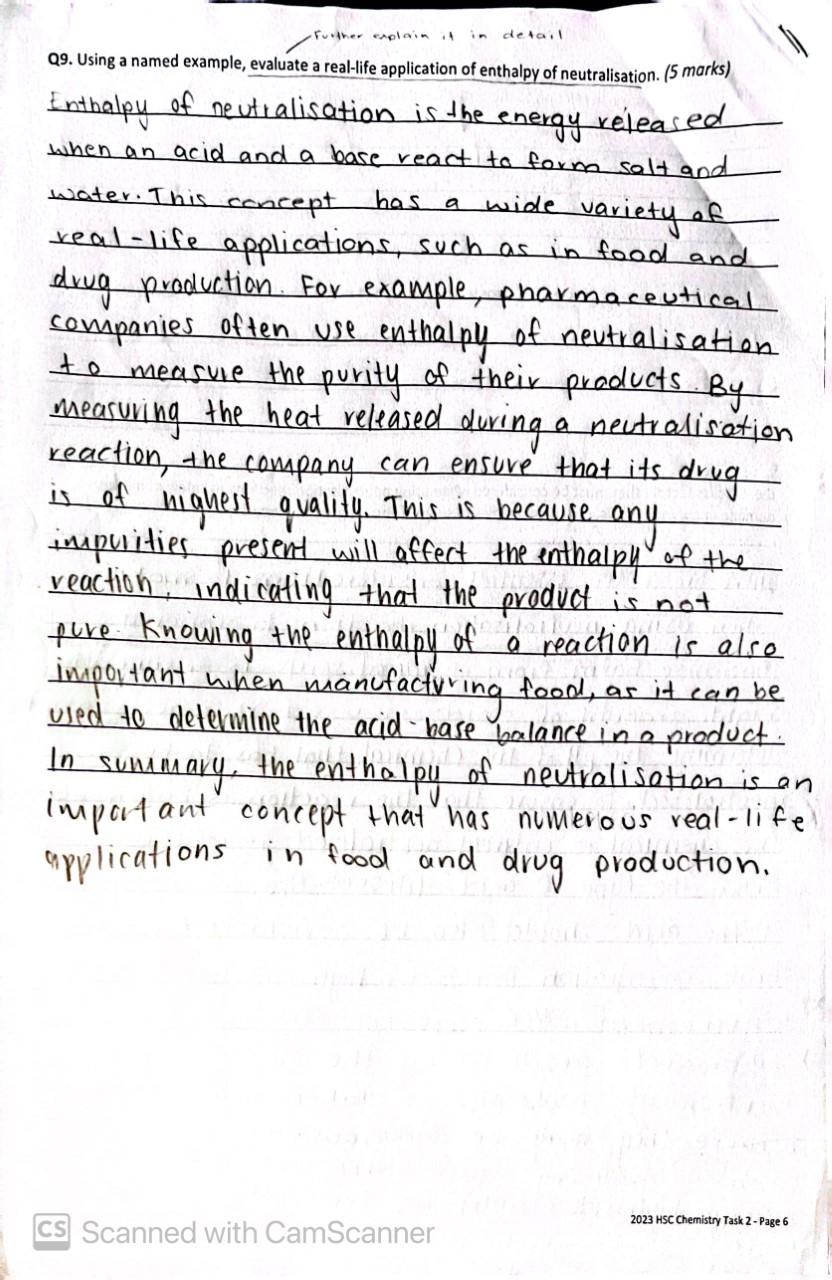 Further explain it in detail
Q9. Using a named example, evaluate a real-life application of enthalpy of neutralisation. (5 marks)
Enthalpy of neutralisation is the energy released
when an acid and a base react to form salt and
water. This concept has a wide variety of
real-life applications, such as in food and
drug production. For example, pharmaceutical
companies often use enthalpy of neutralisation
to measure the purity of their products. By
measuring the heat released during a neutralisation
reaction, the company can ensure that its drug
is of highest quality. This is because any
impurities present will affect the enthalpy of the
reaction, indicating that the product is not
pure. Knowing the enthalpy of a reaction is also
important when manufacturing food, as it can be
used to determine the acid-base balance in a product.
In summary, the enthalpy of neutralisation is an
important concept that has numerous real-life
applications in food and drug production.
2023 HSC Chemistry Task 2 - Page 6
CS Scanned with CamScanner